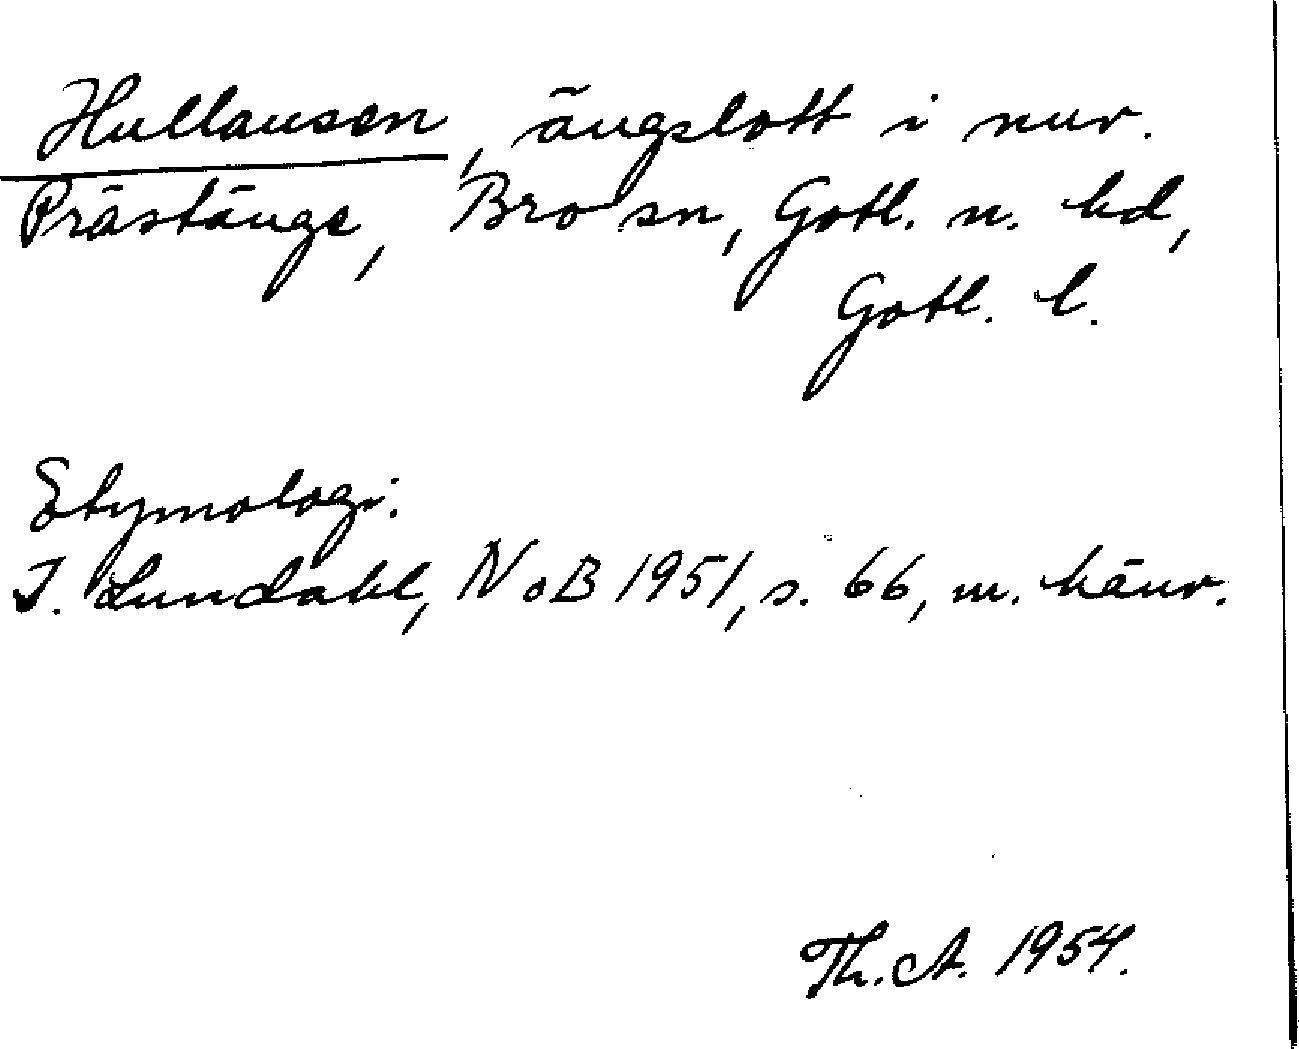 Hullausen, ängslott i nuv.
Prästänge, Bro sn, Gotl. n. hd,
Gotl. l.
Etymologi:
I. Lundahl, NoB 1951, s. 66, m. hänv.
Th. A. 1954.